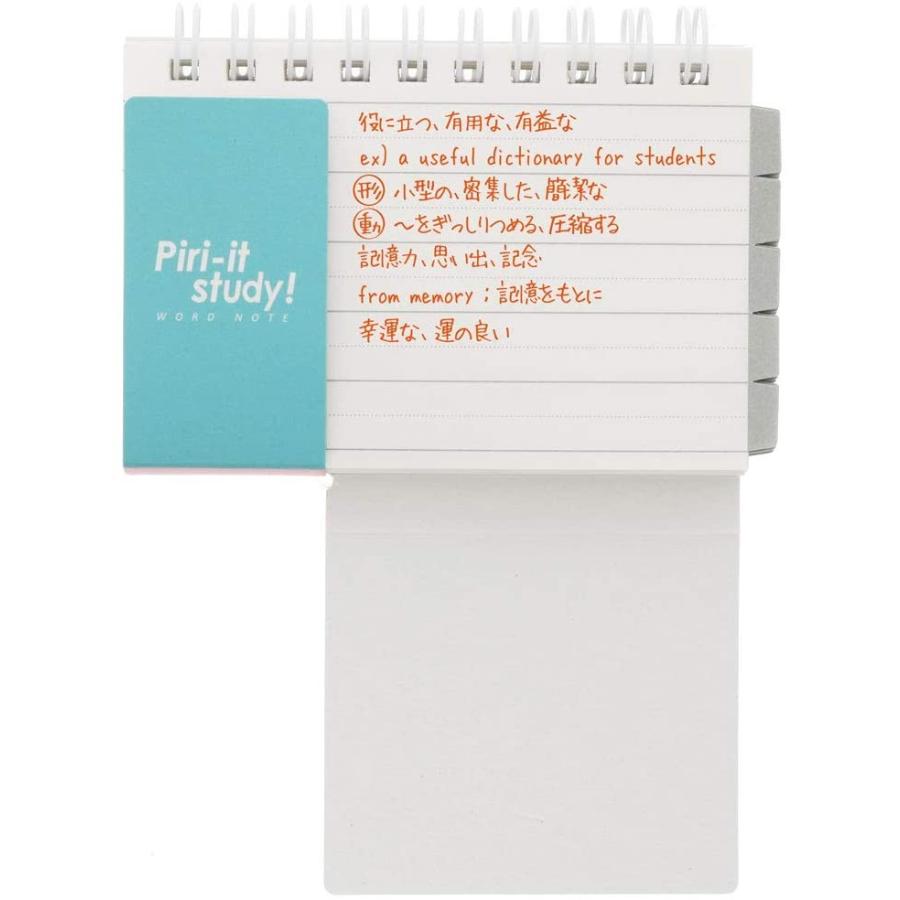 Piri-it
study!
WORD NOTE
役に立つ、有用な、有益な
ex) a useful dictionary for students
㊒ 小型の、密集した、簡潔な
動 〜をぎっしりつめる、圧縮する
記憶力、思い出、記念
from memory ; 記憶をもとに
幸運な、運の良い